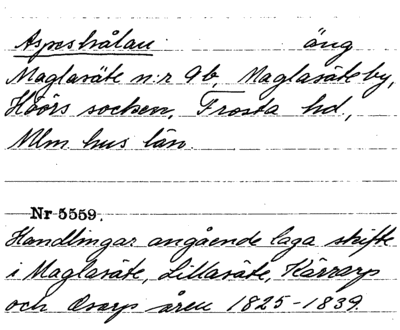 Aspestrålan äng
Maglasäte n:r 9b, Maglasäte by,
Höörs socken, Frosta hd.,
Mlm. hus län.
Nr 5559.
Handlingar angående laga skifte
i Maglasäte, Lillasäte, Kärrarp
och Osarp åren 1825-1839